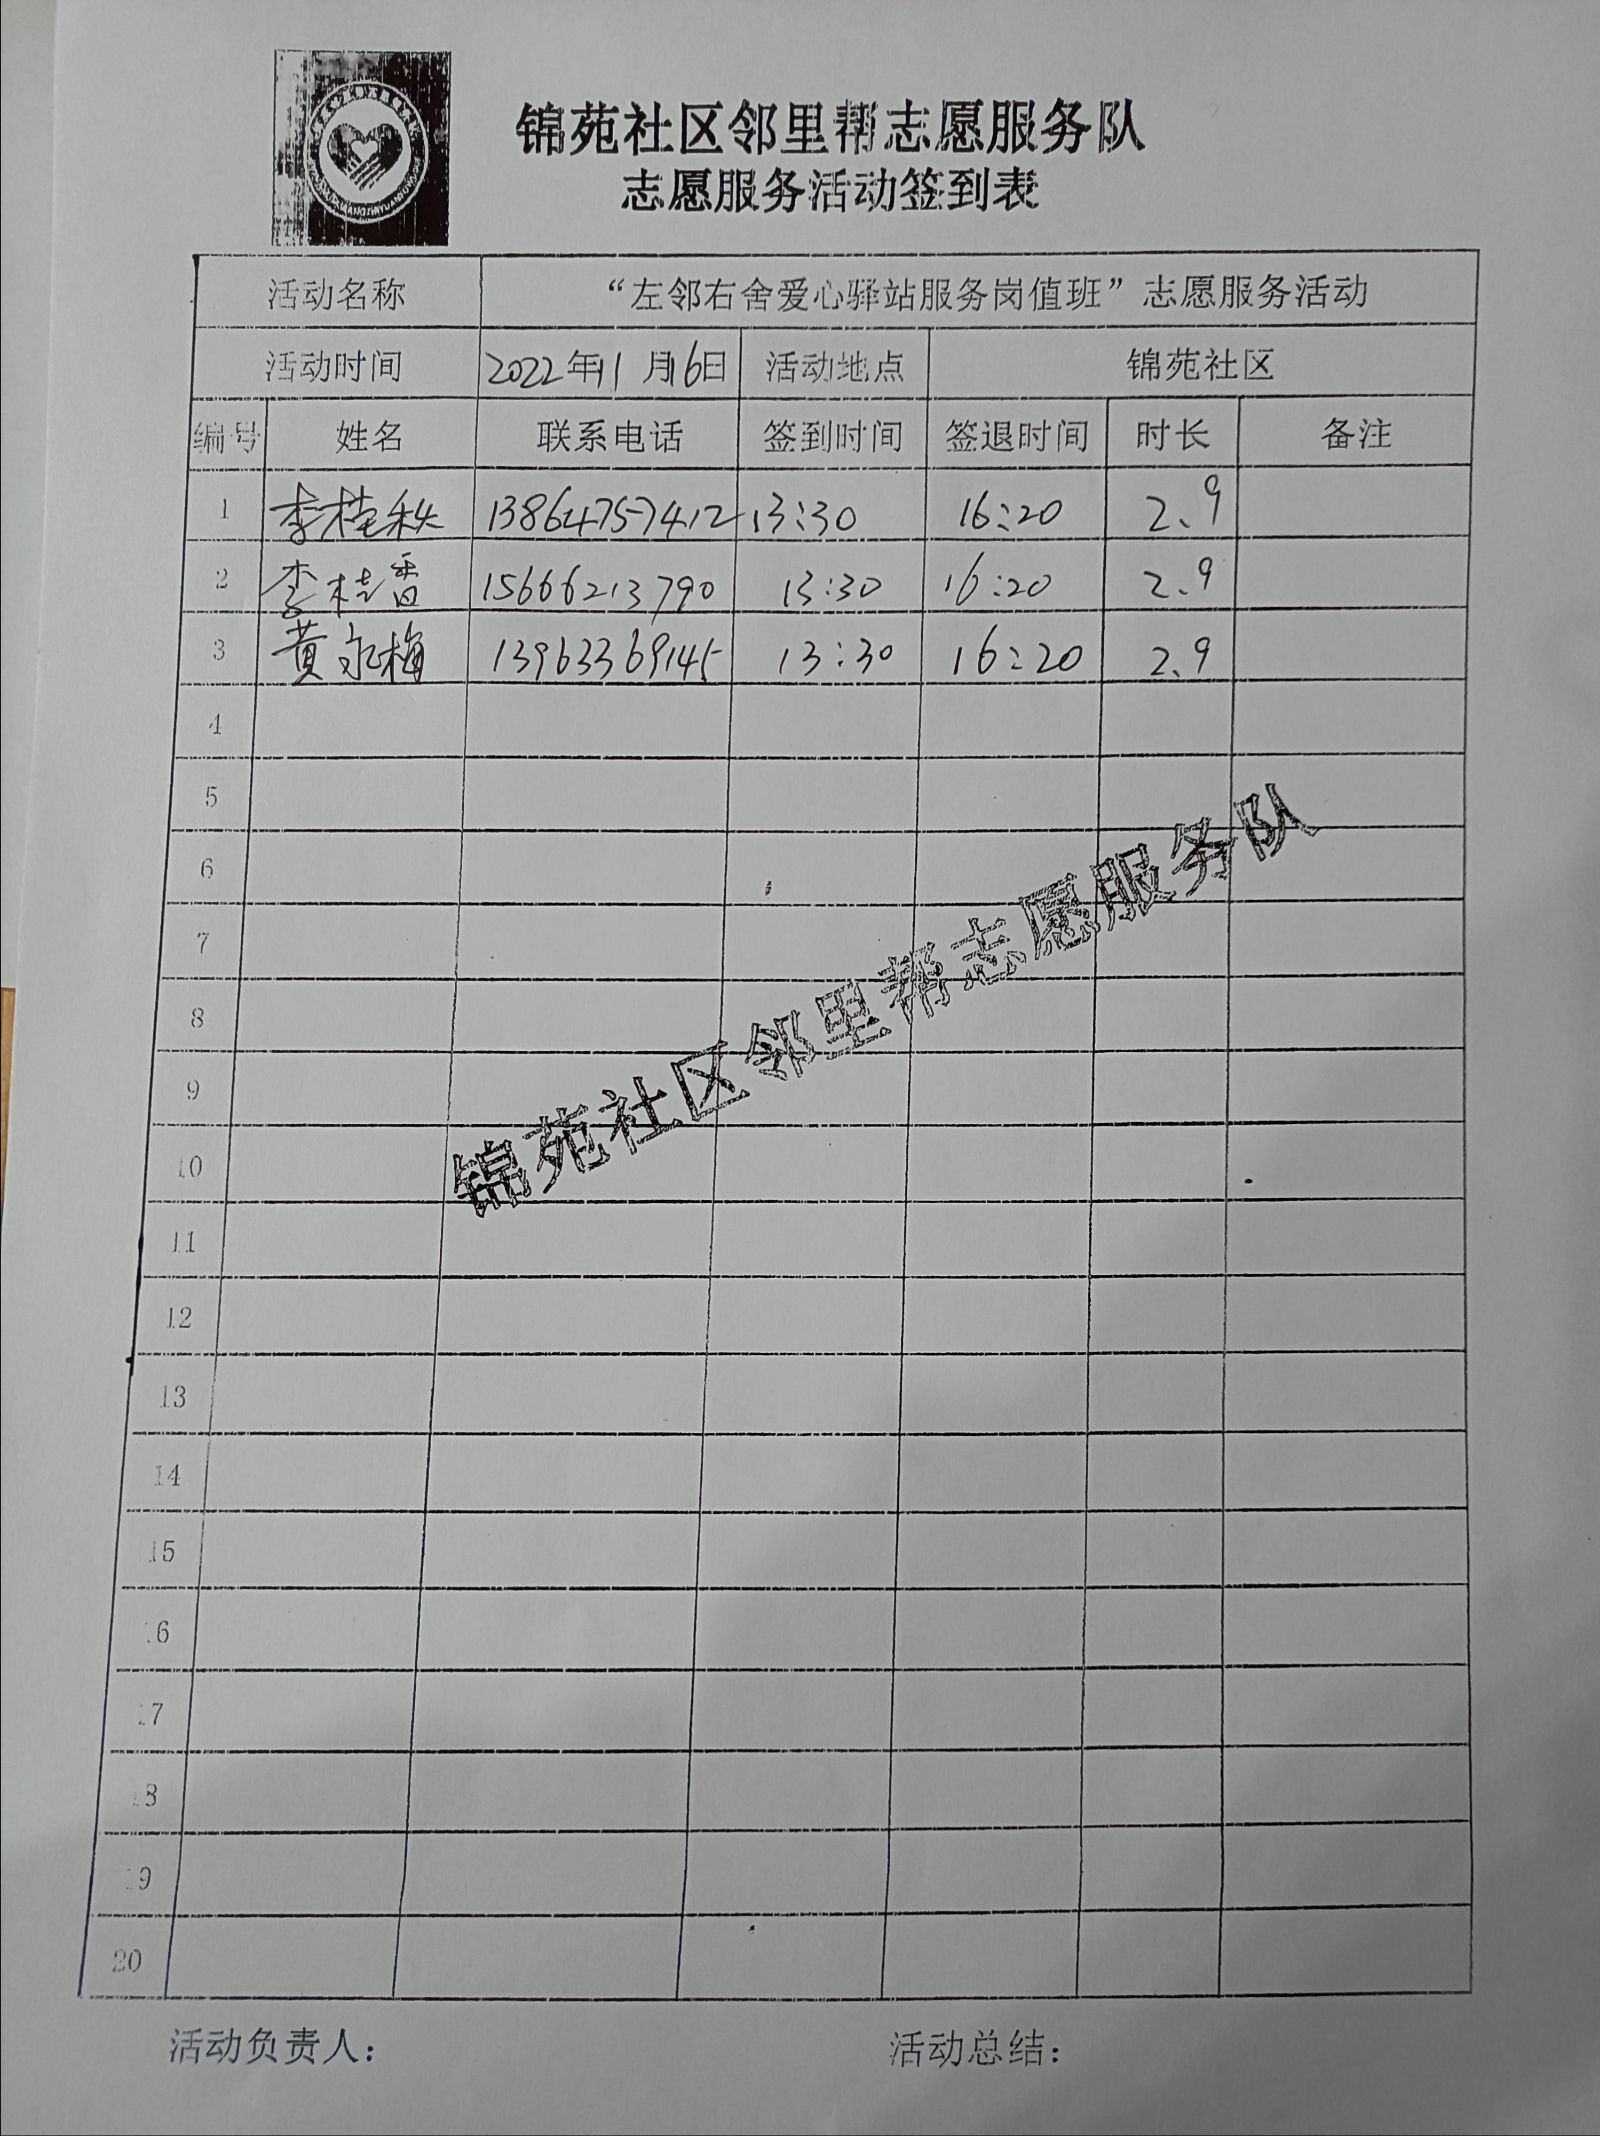 锦苑社区邻里帮志愿服务队
志愿服务活动签到表
活动名称 “左邻右舍爱心驿站服务岗值班”志愿服务活动
活动时间 2022年11月16日 活动地点 锦苑社区
编号 姓名 联系电话 签到时间 签退时间 时长 备注
1 李桂秋 13864757412 13:30 16:20 2.9
2 李桂香 15666213790 13:30 16:20 2.9
3 黄永梅 13963369145 13:30 16:20 2.9
4
5
6
7
8
9
10
11
12
13
14
15
16
17
18
19
20
锦苑社区邻里帮志愿服务队
活动负责人： 活动总结：